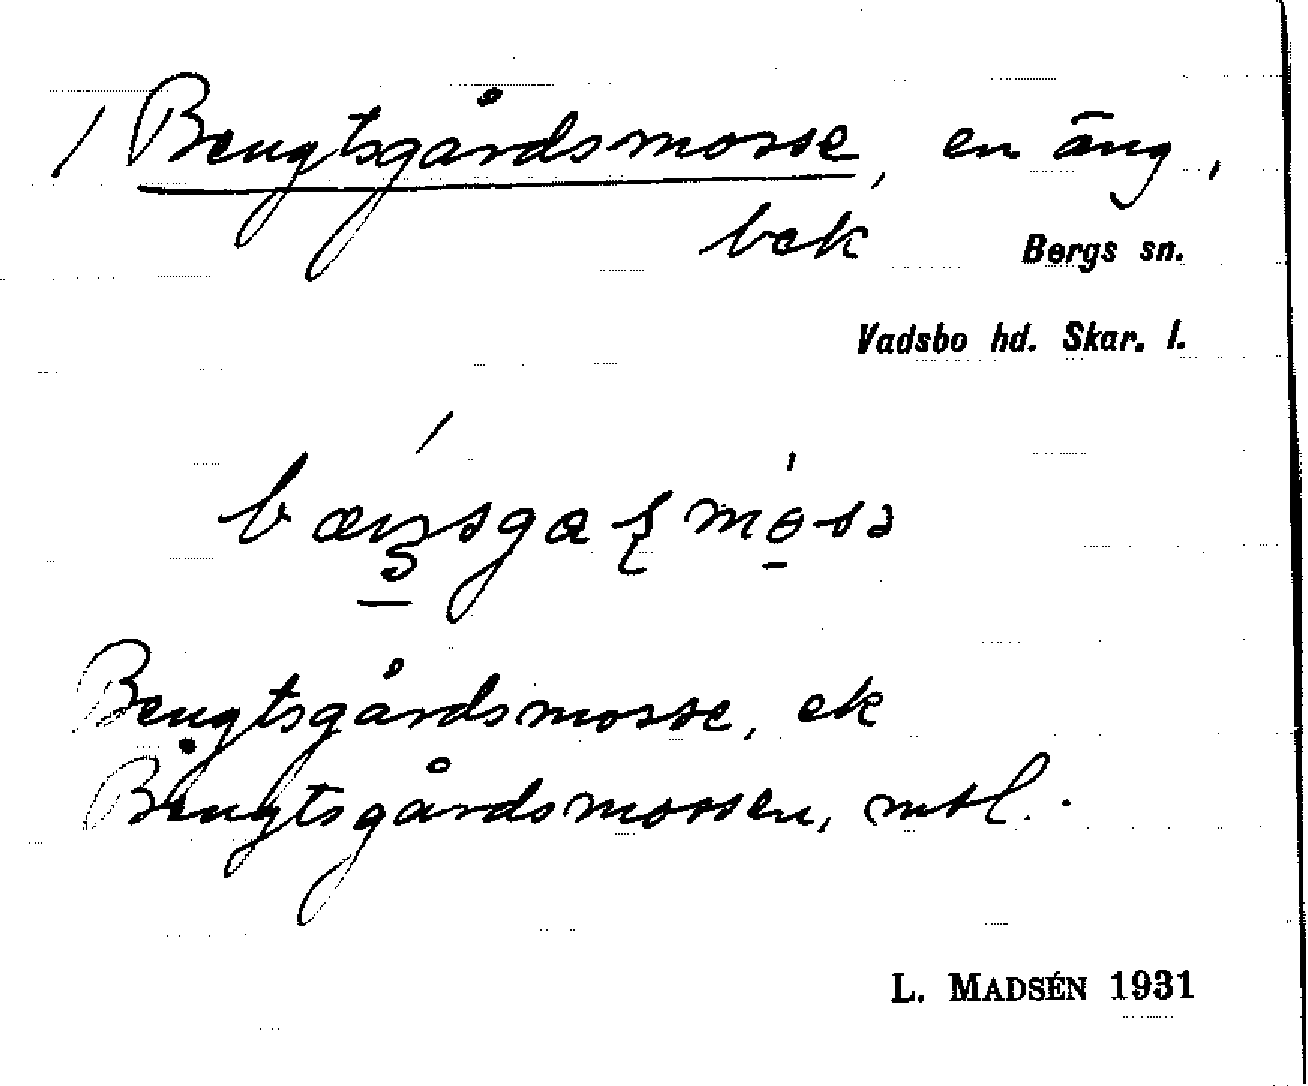 / Bengtsgårdsmosse, en äng,
bek
Bergs sn.
Vadsbo hd. Skar. l.
Bengtsgårdsmosse, ek
Bengtsgårdsmossen, mtl.
L. MADSÉN 1931